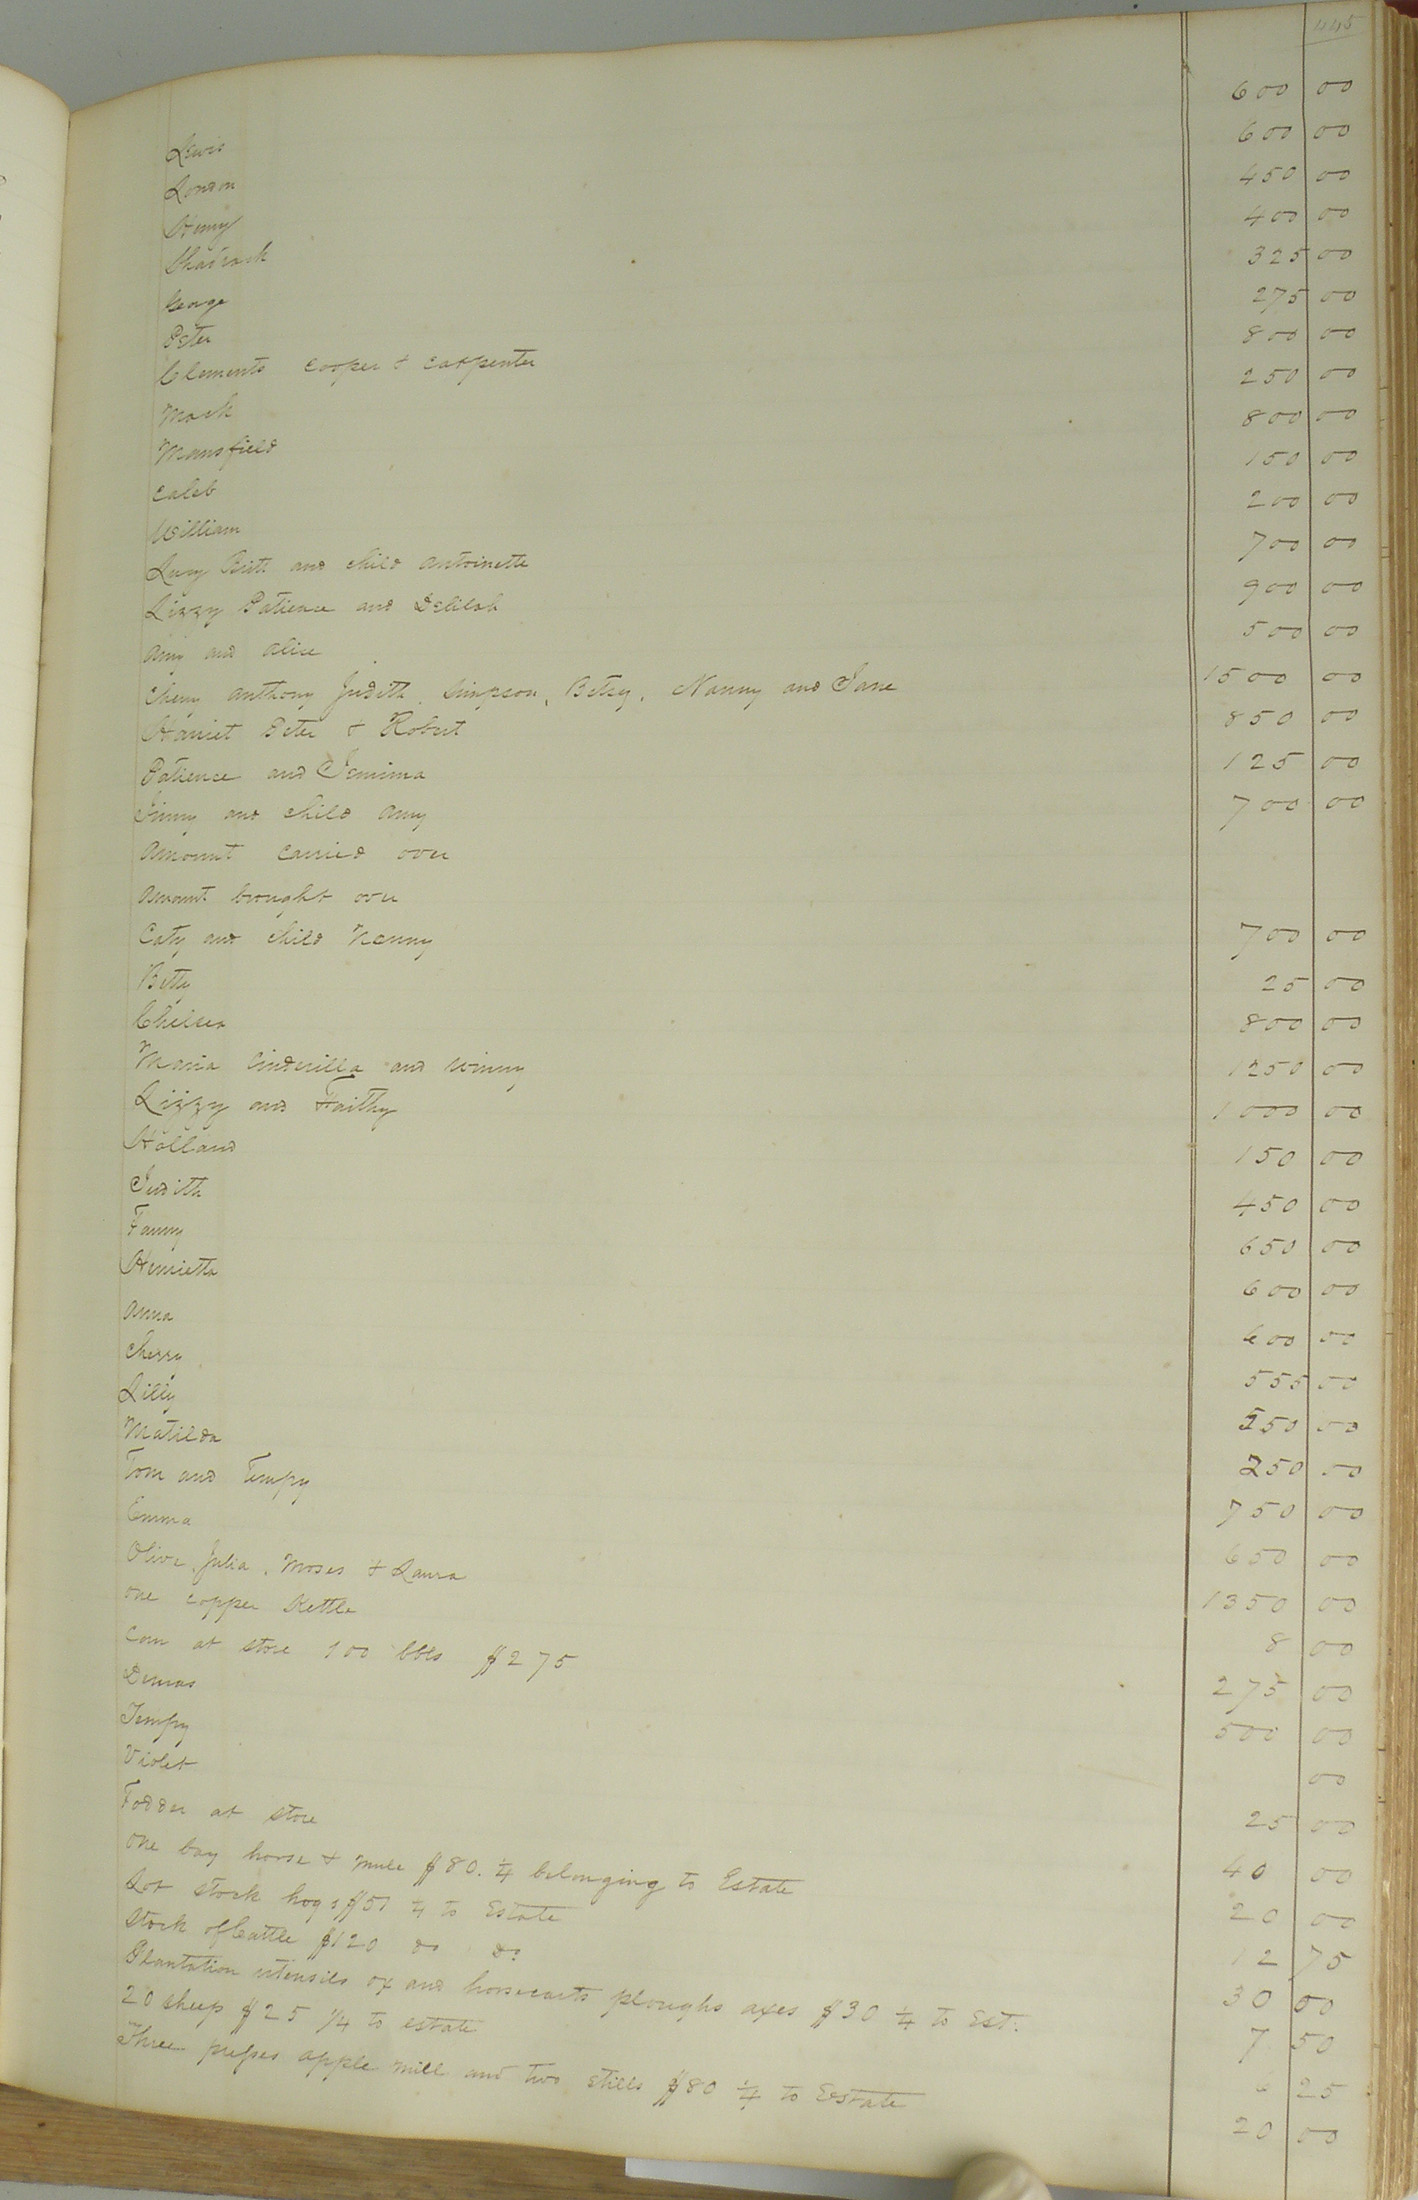 445
Lewis 600 00
London 600 00
Henry 450 00
Shadrack 400 00
George 325 00
Peter 275 00
Clements cooper & carpenter 800 00
Mack 250 00
Mansfield 800 00
Caleb 150 00
William 200 00
Lucy Britt and child Antoinette 700 00
Lizzy Patience and Delilah 900 00
Amy and Alice 500 00
Chery Anthony Judith, Simpson, Betsy, Nanny and Jane 1500 00
Harriet Peter & Robert 850 00
Patience and Jemima 125 00
Jinny and child Amy 700 00
Amount carried over
Amount brought over
Caty and child Nanny 700 00
Betty 25 00
Chelsea 800 00
Maria Cinderilla and Winny 1250 00
Lizzy and Faithy 1000 00
Holland 150 00
Judith 450 00
Fanny 650 00
Henrietta 600 00
Anna 600 00
Cherry 555 00
Lilly 550 00
Matilda 250 00
Tom and Tempy 750 00
Emma 650 00
Olive, Julia, Moses & Laura 1350 00
one copper Kettle 8 00
Corn at store 100 bbls $275 275 00
Demas 500 00
Tempy 00
Violet 25 00
Fodder at store 40 00
One bay horse & mule $80. ¼ belonging to Estate 20 00
Lot stock hogs $51 ¼ to Estate 12 75
Stock of Cattle $120 do do 30 00
Plantation utensils ox and horsecarts ploughs axes $30 ¼ to Est. 7 50
20 sheep $25 1/4 to estate 6 25
Three presses apple mill and two stills $80 ¼ to Estate 20 00